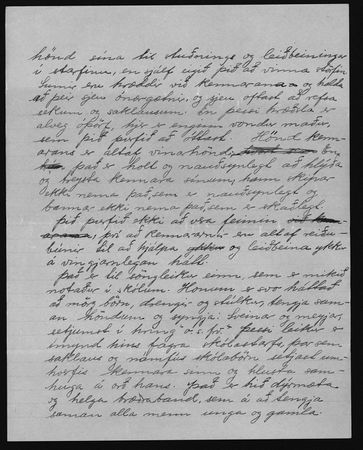 hönd sína til stuðnings og leiðbeiningar
í starfinu, en sjálf eigið þið að vinna störfin.
Sumir eru hræddir við kennarann og halda
að þeir sjeu önergetnir, og sjeu oftast að refsa
sekum og saklausum. En þessi hræðsla er
alveg óþörf, hjer er enginn vondur maður,
sem þið þurfið að óttast. Hönd kenn-
arans er ávalt vinarhönd,
það er holt og nauðsynlegt að hlýða
og treysta kennara sínum, hann skipar
ekki nema það, sem er nauðsynlegt og
bannar ekki nema það, sem er skaðlegt.
Þið þurfið ekki að vera feimin
því að kennararnir eru altaf reiðu-
búnir til að hjálpa og leiðbeina ykkur
á vingjarnlegan hátt.
Það er til söngleikur einn, sem er mikið
notaður í skólum. Honum er svo háttað
að mörg börn, drengir og stúlkur, tengja sam-
an höndum og syngja: Sveinar og meyjar,
setjumst í hring o.s.frv. Þessi leikur er
ímynd hins fagra skólastarfs þar sem
saklaus og námfús skólabörn setjast um-
hverfis kennara sinn og hlusta sam-
huga á orð hans. Það er hið dýrmæta
og helga bræðraband, sem á að tengja
saman alla menn unga og gamla.